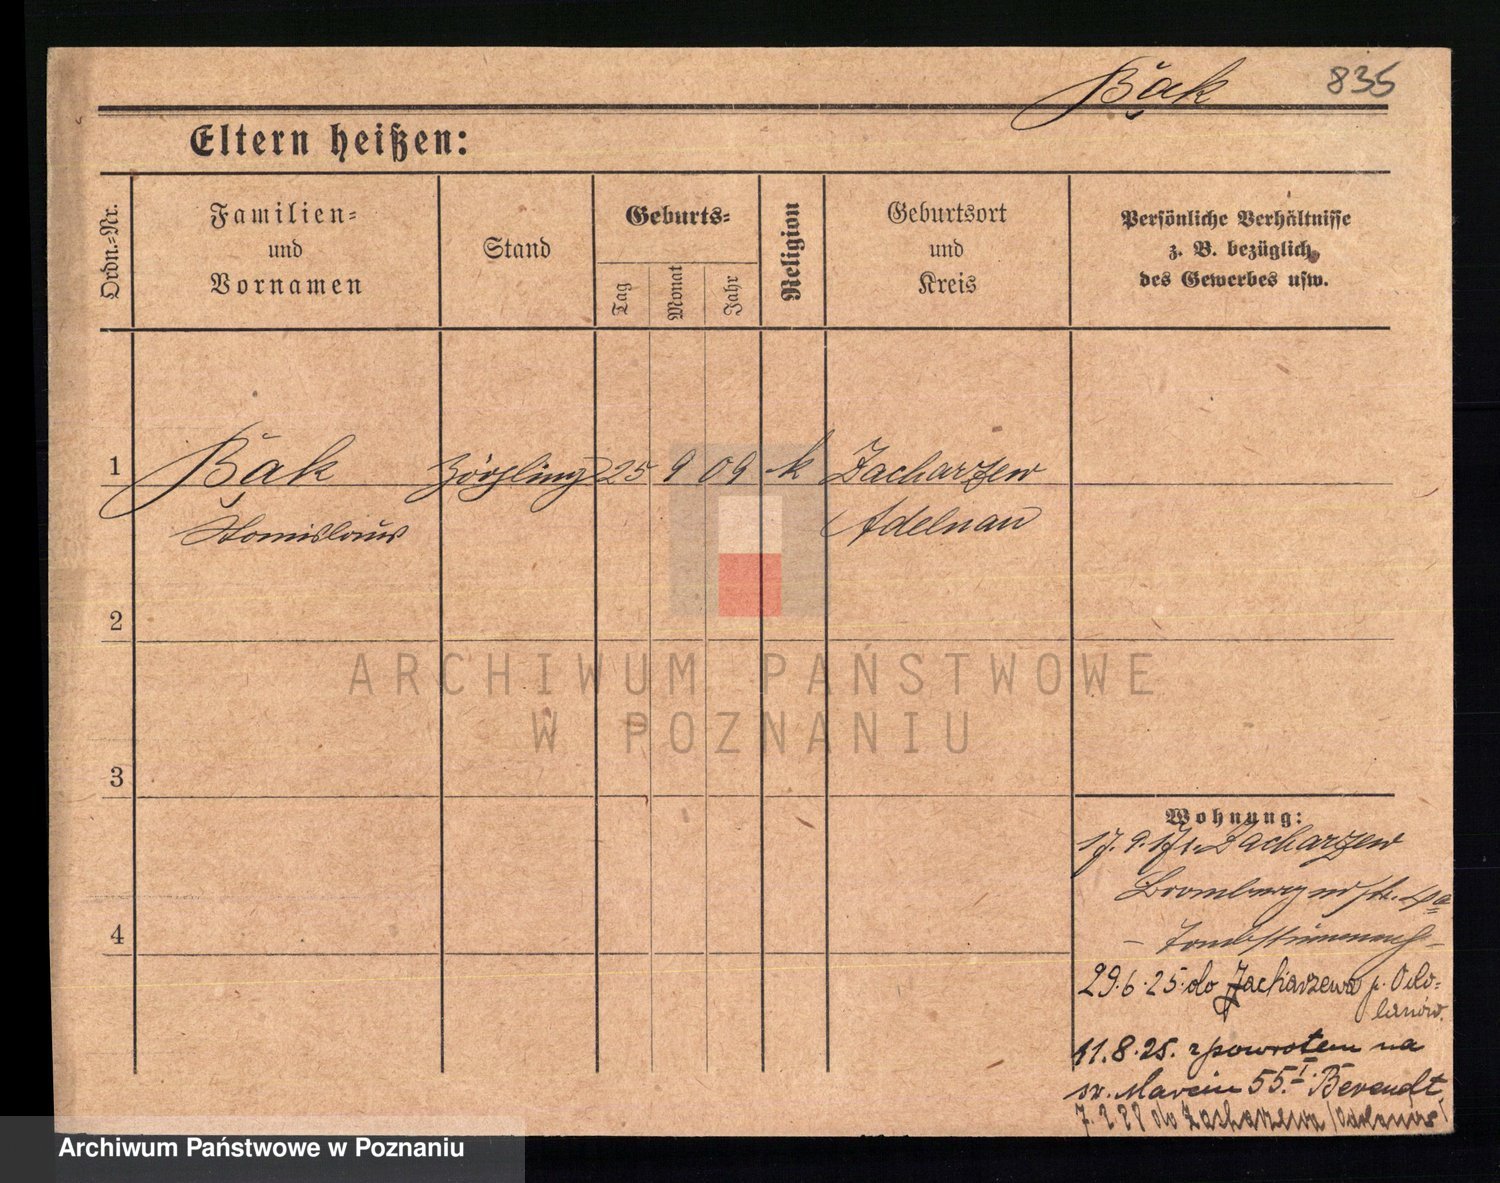 Bąk 835
Eltern heißen:
Ordn.=Nr.
Familien=
und
Vornamen
Stand
Geburts=
Tag
Monat
Jahr
Religion
Geburtsort
und
Kreis
Persönliche Verhältnisse
z. B. bezüglich
des Gewerbes usw.
1 Bąk Zögling 25 9 09 k Zacharzew
Stanislaus Adelnau
2
ARCHIWUM PAŃSTWOWE
W POZNANIU
3
Wohnung:
17.9. Zacharzew
Bromberg
4
29.6.25. do Zacharzewa p. Odo=
lanów.
11.8.25. zpowrotem na
św. Marcin 55.I. Berendt
do Zacharzewa
Archiwum Państwowe w Poznaniu